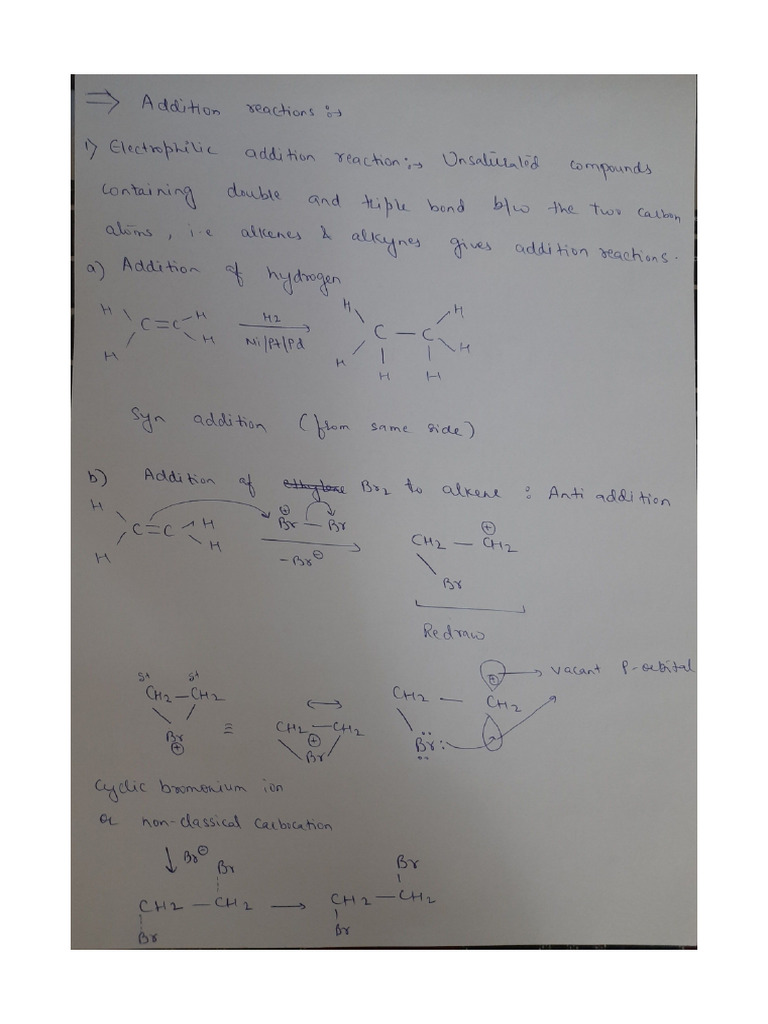 ⇒ Addition reactions :→
1) Electrophilic addition reaction :→ Unsaturated compounds
containing double and triple bond b/w the two carbon
atoms, i.e alkenes & alkynes gives addition reactions.
a) Addition of hydrogen
H H H H
C=C H2 C — C
H H Ni/Pt/Pd H H
H H
Syn addition (from same side)
b) Addition of ethylene Br2 to alkene : Anti addition
H H ⊕ Br — Br ⊕
C=C CH2 — CH2
H H -Br⊖ Br
Redraw
δ+ δ+ ⊕ → vacant P-orbital
CH2 — CH2 ≡ CH2 — CH2 ↔ CH2 — CH2
Br ⊕ Br Br:
⊕
Cyclic bromonium ion
or non-classical carbocation
↓ Br⊖
Br Br
CH2 — CH2 → CH2 — CH2
Br Br